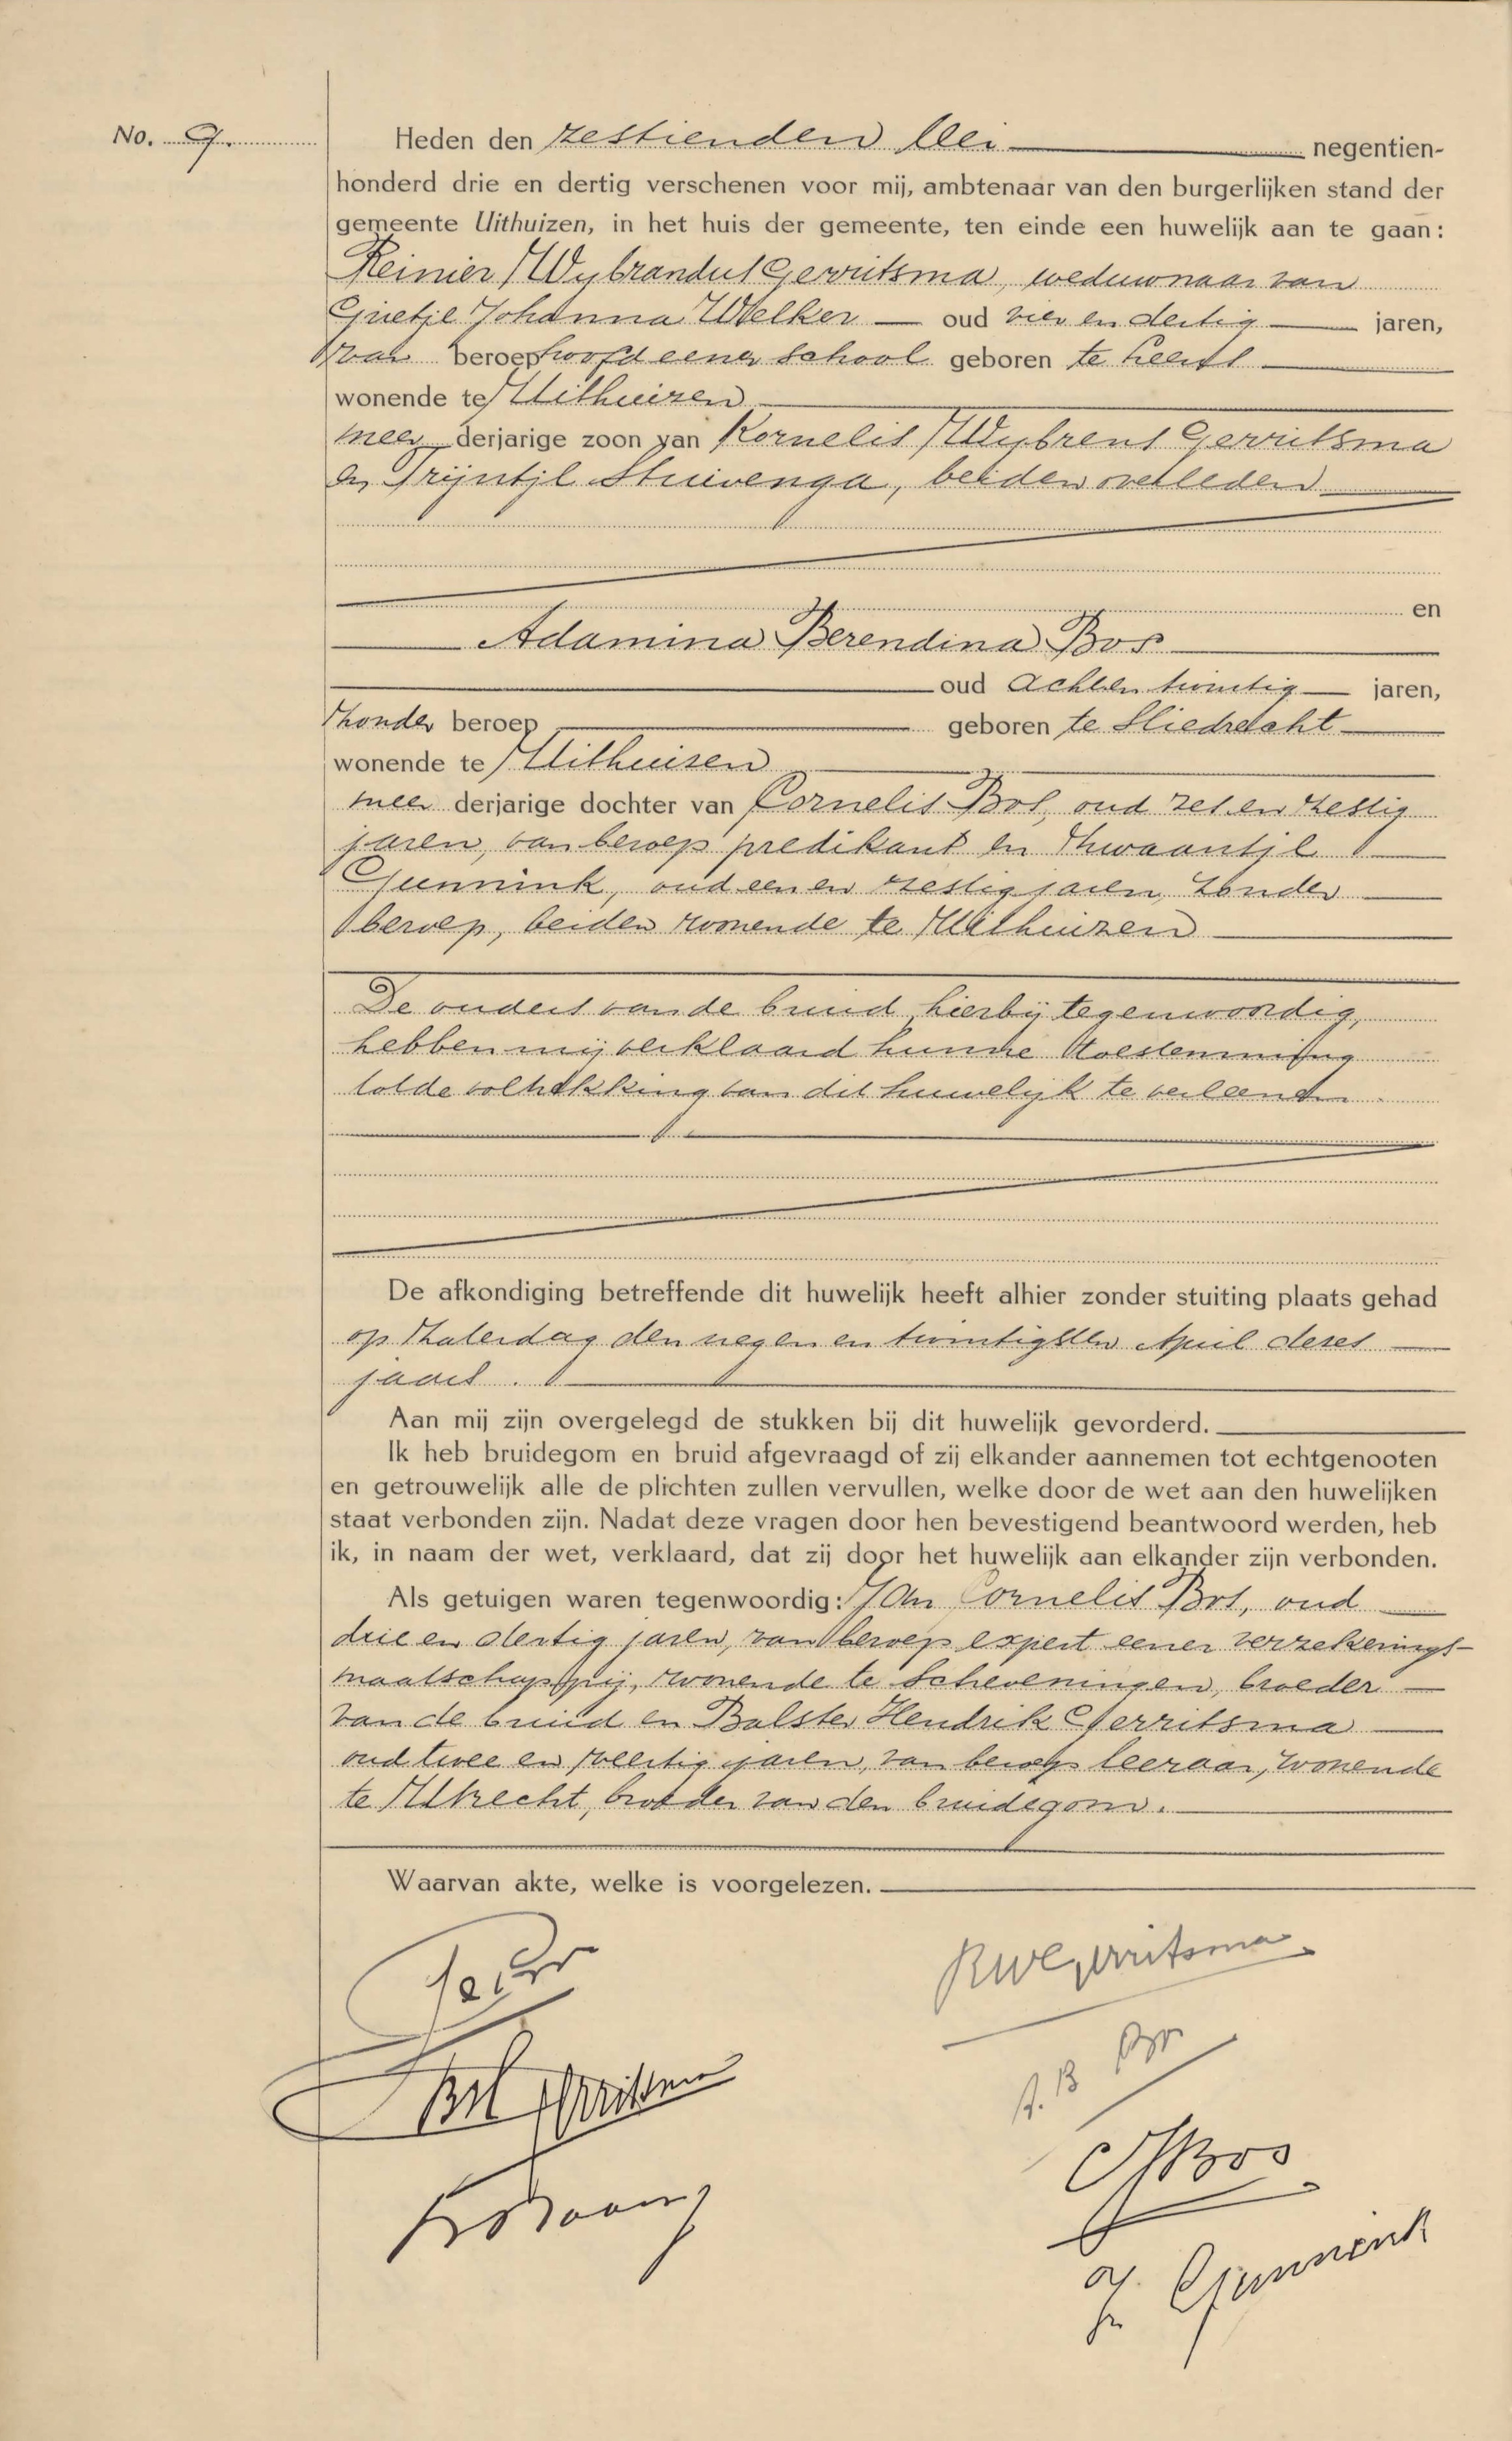 No. 9.
Heden den zestienden Mei negentien-
honderd drie en dertig verschenen voor mij, ambtenaar van den burgerlijken stand der
gemeente Uithuizen, in het huis der gemeente, ten einde een huwelijk aan te gaan:
Reinier Wybrandus Gerritsma, weduwnaar van
Grietje Johanna Welker oud vier en dertig jaren,
van beroep hoofd eener school geboren te Leens
wonende te Uithuizen
meer derjarige zoon van Kornelis Wybrens Gerritsma
en Trijntje Stuivenga, beiden overleden
en
Adamina Berendina Bos
oud achtentwintig jaren,
zonder beroep geboren te Sliedrecht
wonende te Uithuizen
meer derjarige dochter van Cornelis Bos, oud zes en zestig
jaren, van beroep predikant en Zwaantje
Gunnink, oud een en zestig jaren, zonder
beroep, beiden wonende te Uithuizen
De ouders van de bruid, hierbij tegenwoordig,
hebben mij verklaard hunne toestemming
tot de voltrekking van dit huwelijk te verleenen
De afkondiging betreffende dit huwelijk heeft alhier zonder stuiting plaats gehad
op Zaterdag den negen en twintigsten April dezes
jaars.
Aan mij zijn overgelegd de stukken bij dit huwelijk gevorderd.
Ik heb bruidegom en bruid afgevraagd of zij elkander aannemen tot echtgenooten
en getrouwelijk alle de plichten zullen vervullen, welke door de wet aan den huwelijken
staat verbonden zijn. Nadat deze vragen door hen bevestigend beantwoord werden, heb
ik, in naam der wet, verklaard, dat zij door het huwelijk aan elkander zijn verbonden.
Als getuigen waren tegenwoordig: Jan Cornelis Bos, oud
drie en dertig jaren, van beroep expert eener verzekerings-
maatschappij, wonende te Scheveningen, broeder
van de bruid en Balster Hendrik Gerritsma
oud twee en veertig jaren, van beroep leeraar, wonende
te Utrecht, broeder van den bruidegom.
Waarvan akte, welke is voorgelezen.
RWGerritsma
A.B Bos
BH Gerritsma
Bos
Gunnink